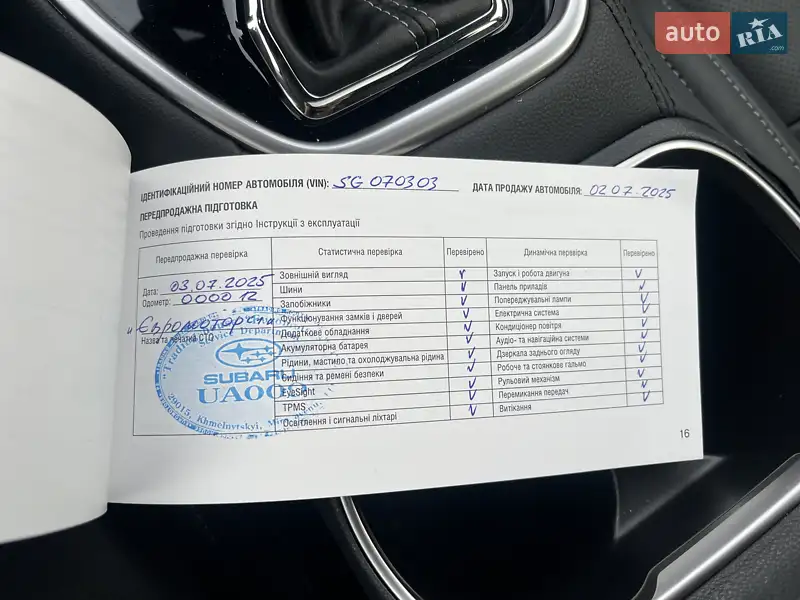 auto RIA.com
ІДЕНТИФІКАЦІЙНИЙ НОМЕР АВТОМОБІЛЯ (VIN): SG 070303 ДАТА ПРОДАЖУ АВТОМОБІЛЯ: 02.07.2025
ПЕРЕДПРОДАЖНА ПІДГОТОВКА
Проведення підготовки згідно Інструкції з експлуатації
Передпродажна перевірка Статистична перевірка Перевірено Динамічна перевірка Перевірено
Дата: 03.07.2025
Одометр: 000012
"Євромоторс"
Назва та печатка СТО
Service Department
SUBARU
UA00
29015, Khmelnytskyi,
Зовнішній вигляд V Запуск і робота двигуна V
Шини V Панель приладів V
Запобіжники V Попереджувальні лампи V
Функціонування замків і дверей V Електрична система V
Додаткове обладнання V Кондиціонер повітря V
Акумуляторна батарея V Аудіо- та навігаційні системи V
Рідини, мастило та охолоджувальна рідина V Дзеркала заднього огляду V
Сидіння та ремені безпеки V Робоче та стоянкове гальмо V
EyeSight V Рульовий механізм V
TPMS V Перемикання передач V
Освітлення і сигнальні ліхтарі V Витікання V
16